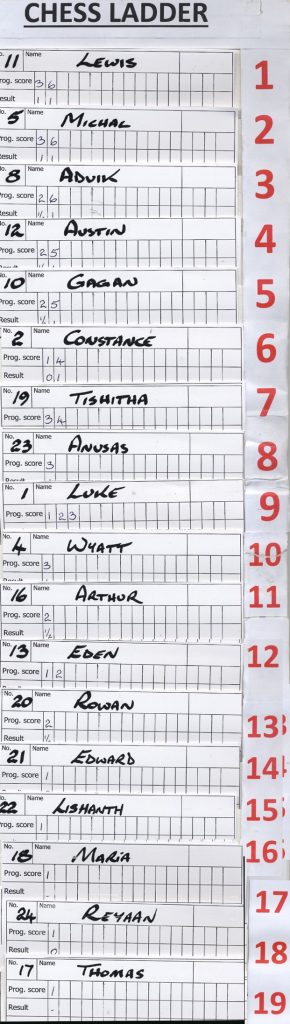 CHESS LADDER
11 Name LEWIS 1
Prog. score 3 6
Result 1 1
5 Name MICHAL 2
Prog. score 3 6
Result 1 1
8 Name ADVIK 3
Prog. score 2 6
Result ½ 1
12 Name AUSTIN 4
Prog. score 2 5
10 Name GAGAN 5
Prog. score 2 5
Result ½
No. 2 Name CONSTANCE 6
Prog. score 1 4
Result 0 1
No. 19 Name TISHITHA 7
Prog. score 3 4
No. 23 Name ANUSAS 8
Prog. score 3
No. 1 Name LUKE 9
Prog. score 1 2 3
No. 4 Name WYATT 10
Prog. score 3
No. 16 Name ARTHUR 11
Prog. score 2
Result ½
No. 13 Name EDEN 12
Prog. score 1 2
No. 20 Name ROWAN
Prog. score 2 13
Result ½
No. 21 Name EDWARD
Prog. score 1 14
22 Name LISHANTH 15
Prog. score 1
No. 18 Name MARIA 16
Prog. score 1
Result -
No. 24 Name REYAAN 17
Prog. score 1
Result 0 18
No. 17 Name THOMAS
Prog. score 1 19
Result -